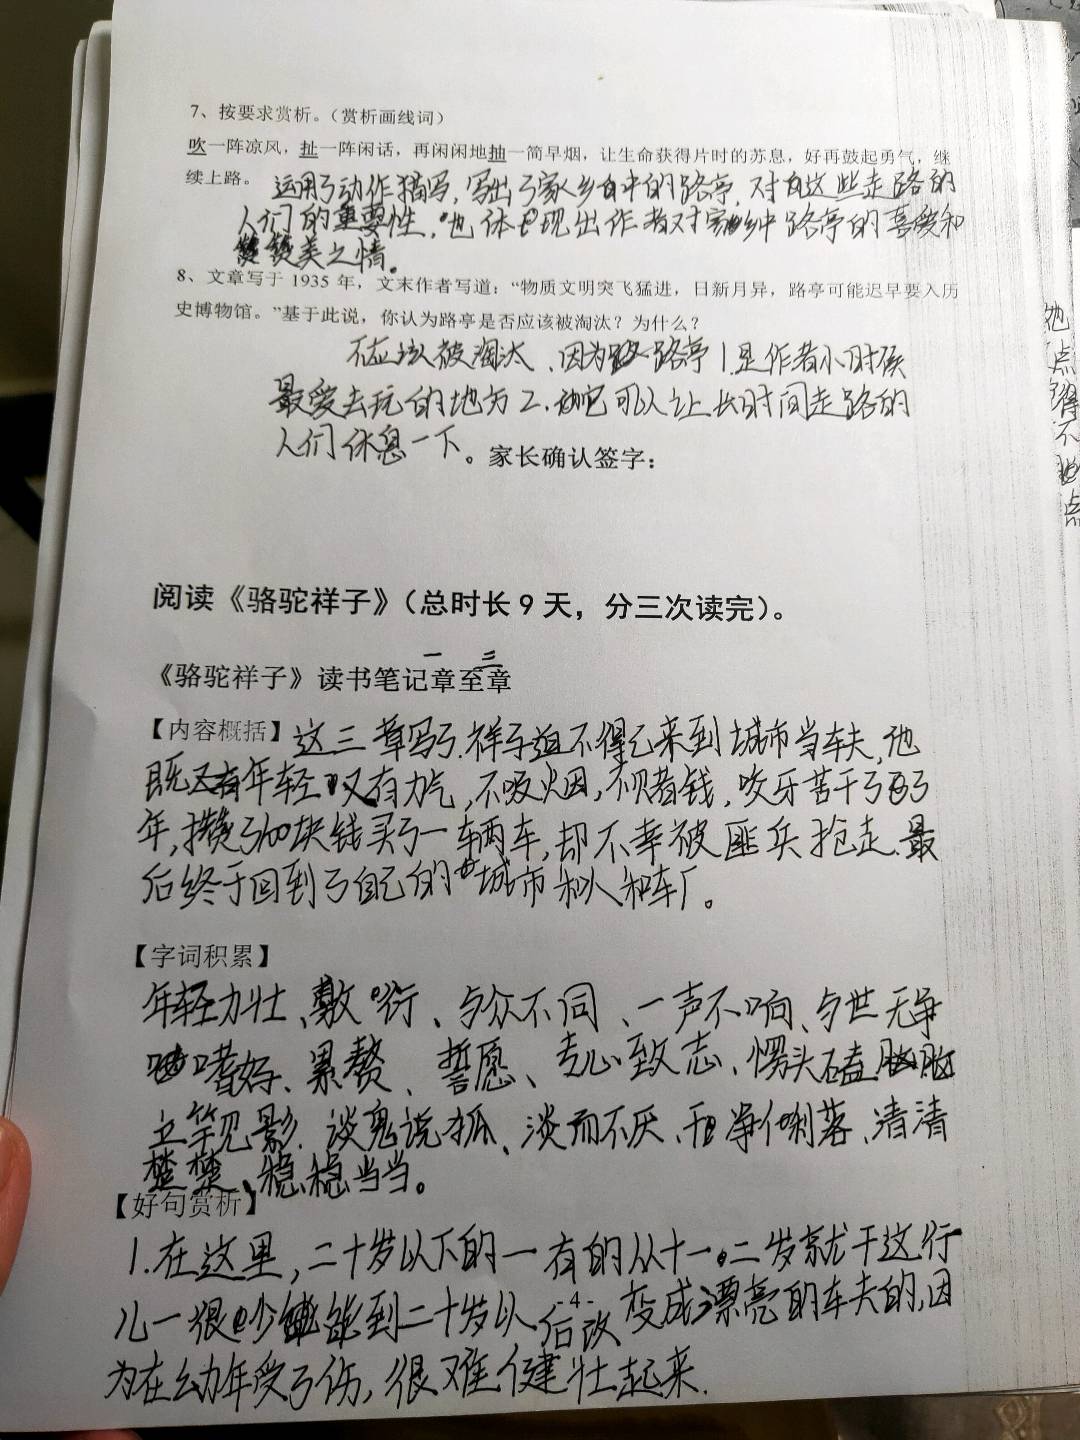 7、按要求赏析。（赏析画线词）
吹一阵凉风，扯一阵闲话，再闲闲地抽一筒旱烟，让生命获得片时的苏息，好再鼓起勇气，继
续上路。 运用了动作描写，写出了家乡中的路亭，对在这些走路的
人们的重要性，也体现出作者对家乡中路亭的喜爱和
赞美之情。
8、文章写于 1935 年，文末作者写道：“物质文明突飞猛进，日新月异，路亭可能迟早要入历
史博物馆。”基于此说，你认为路亭是否应该被淘汰？为什么？
不应该被淘汰、因为路亭 1.是作者小时候
最爱去玩的地方 2.它可以让长时间走路的
人们休息一下。家长确认签字：
阅读《骆驼祥子》（总时长 9 天，分三次读完）。
一 三
《骆驼祥子》读书笔记章至章
【内容概括】这三章写了祥子迫不得已来到城市当车夫，他
既年轻又有力气，不吸烟，不赌钱，咬牙苦干了3
年，攒了100块钱买了一辆车，却不幸被匪兵抢走.最
后终于回到了自己的城市和人和车厂。
【字词积累】
年轻力壮、敷衍、与众不同、一声不响、与世无争
嗜好、累赘、誓愿、专心致志、愣头磕脑
立竿见影.谈鬼说狐、淡而不厌、干净俐落、清清
楚楚、稳稳当当。
【好句赏析】
1.在这里，二十岁以下的一有的从十一、二岁就干这行
儿一很少能到二十岁以后改变成漂亮的车夫的，因
-4-
为在幼年受了伤，很难健壮起来.
他
点
得
不
点